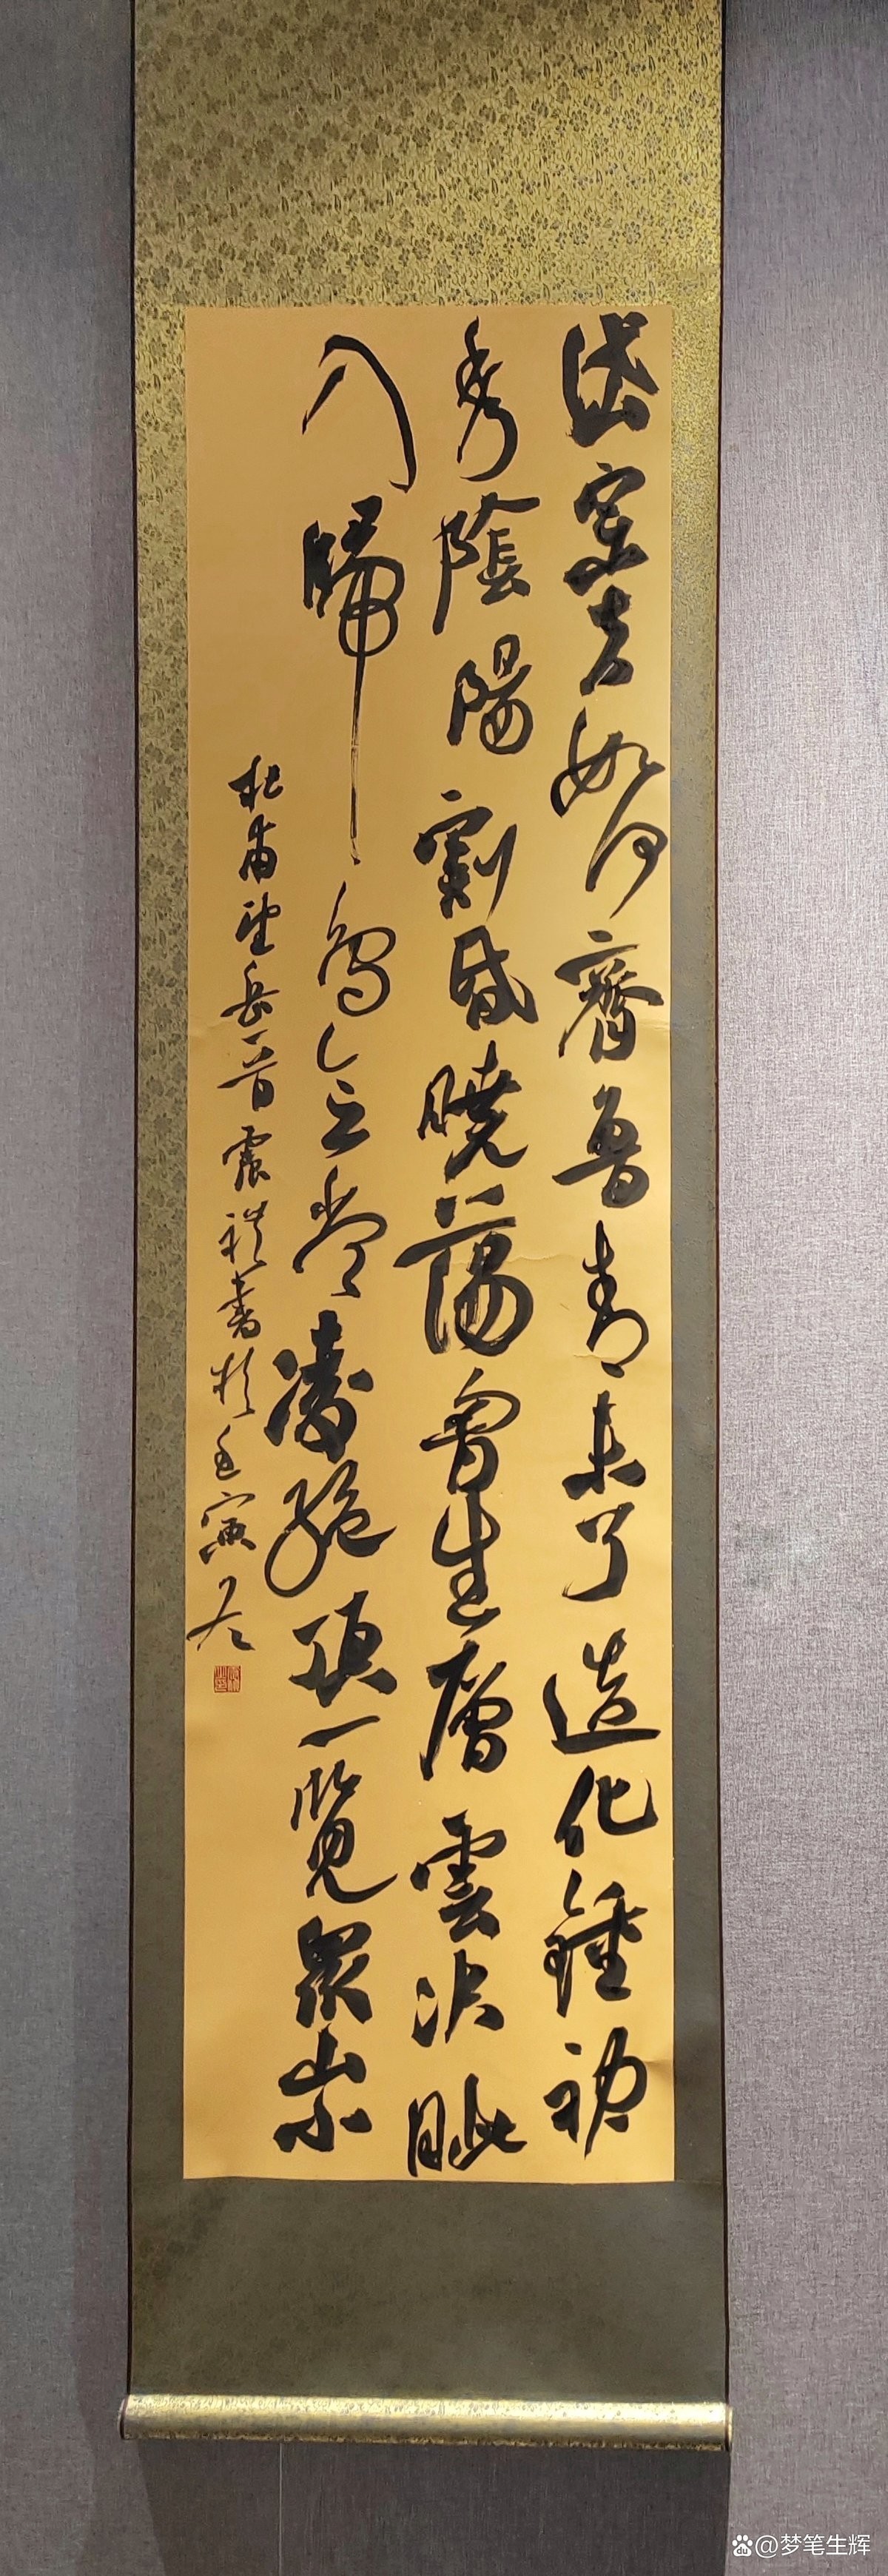 岱宗夫如何齊魯青未了造化鍾神
秀陰陽割昏曉蕩胷生層雲決眦
入歸鳥會當凌絕頂一覽眾山小
杜甫望岳一首震書於壬寅冬
@梦笔生辉